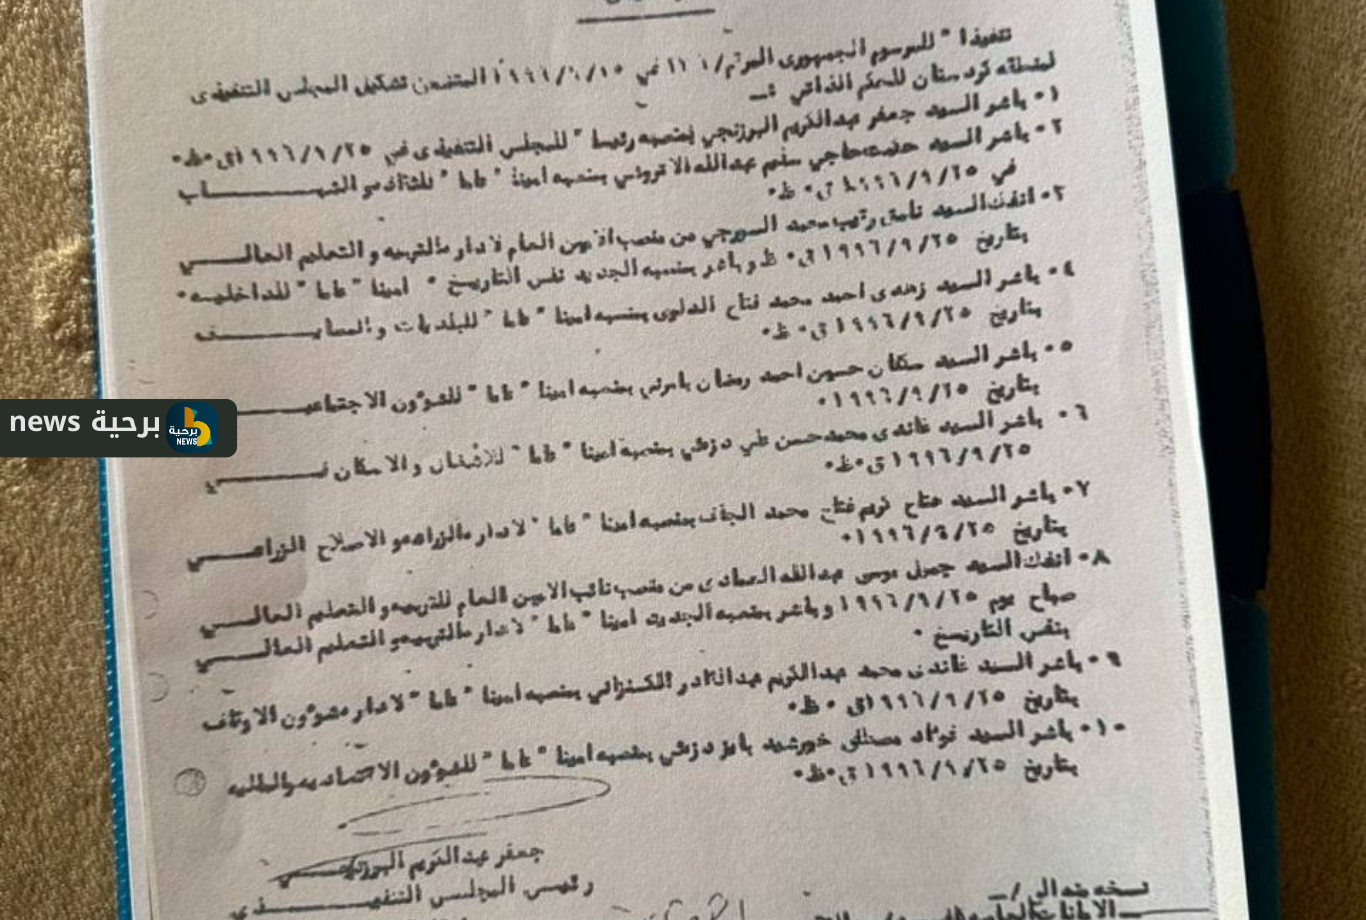 تنفيذا " للمرسوم الجمهوري المرقم/ ١١ في ١٩٩٦/٩/١٥ المتضمن تشكيل المجلس التنفيذي
لمنطقة كردستان للحكم الذاتي :ـ
١٠ باشر السيد جعفر عبدالكريم البرزنجي بمنصبه رئيسا " للمجلس التنفيذي في ١٩٩٦/٩/٢٥ ق٠ظ٠
٢٠ باشر السيد حاجي سليم عبدالله بمنصبه امينا " عاما " للثقافه و الشبـــاب
في ١٩٩٦/٩/٢٥ ق٠ ظ٠
٣٠ انفك السيد نامق رقيب محمد السورجي من منصب الامين العام لادارة التربيه و التعليم العالـــي
بتاريخ ١٩٩٦/٩/٢٥ ق٠ ظ و باشر بمنصبه الجديد نفس التاريخ ٠ امينا " عاما " للداخليــه٠
٤٠ باشر السيد زهدي احمد محمد فتاح الدلوي بمنصبه امينا " عاما " للبلديات و المصايـــف
بتاريخ ١٩٩٦/٩/٢٥ ق٠ ظ٠
٥٠ باشر السيد حسين احمد رمضان بامرني بمنصبه امينا " عاما " للشؤون الاجتماعيـــ
بتاريخ ١٩٩٦/٩/٢٥ ٠
٦٠ باشر السيد محمدحسن علي دزئي بمنصبه امينا " عاما " للاشغال والاسكان فـــي
١٩٩٦/٩/٢٥ ق٠ظ٠
٧٠ باشر السيد كريم فتاح محمد الجاف بمنصبه امينا " عاما " لادارة الزراعه و الاصلاح الزراعـــي
بتاريخ ١٩٩٦/٩/٢٥ ٠
٨٠ انفك السيد جميل موسى عبدالله العمادي من منصب نائب الامين العام للتربيه و التعليم العالـــي
صباح يوم ١٩٩٦/٩/٢٥ و باشر بمنصبه الجديد امينا " عاما " لادارة التربيه و التعليم العالـــي
بنفس التاريخ ٠
٩٠ باشر السيد محمد عبدالكريم عبدالقادر الكسنزاني بمنصبه امينا " عاما " لادارة شؤون الاوقاف
بتاريخ ١٩٩٦/٩/٢٥ ق ٠ ظ٠
١٠٠ باشر السيد فؤاد مصطفى خورشيد بايز دزئي بمنصبه امينا " عاما " للشؤون الاقتصاديه والماليه
بتاريخ ١٩٩٦/٩/٢٥ ق٠ظ٠
جعفر عبدالكريم البرزنجــي
رئيس المجلس التنفيـــذي
نسخه منه الى /ـ
برحية news
برحية
NEWS